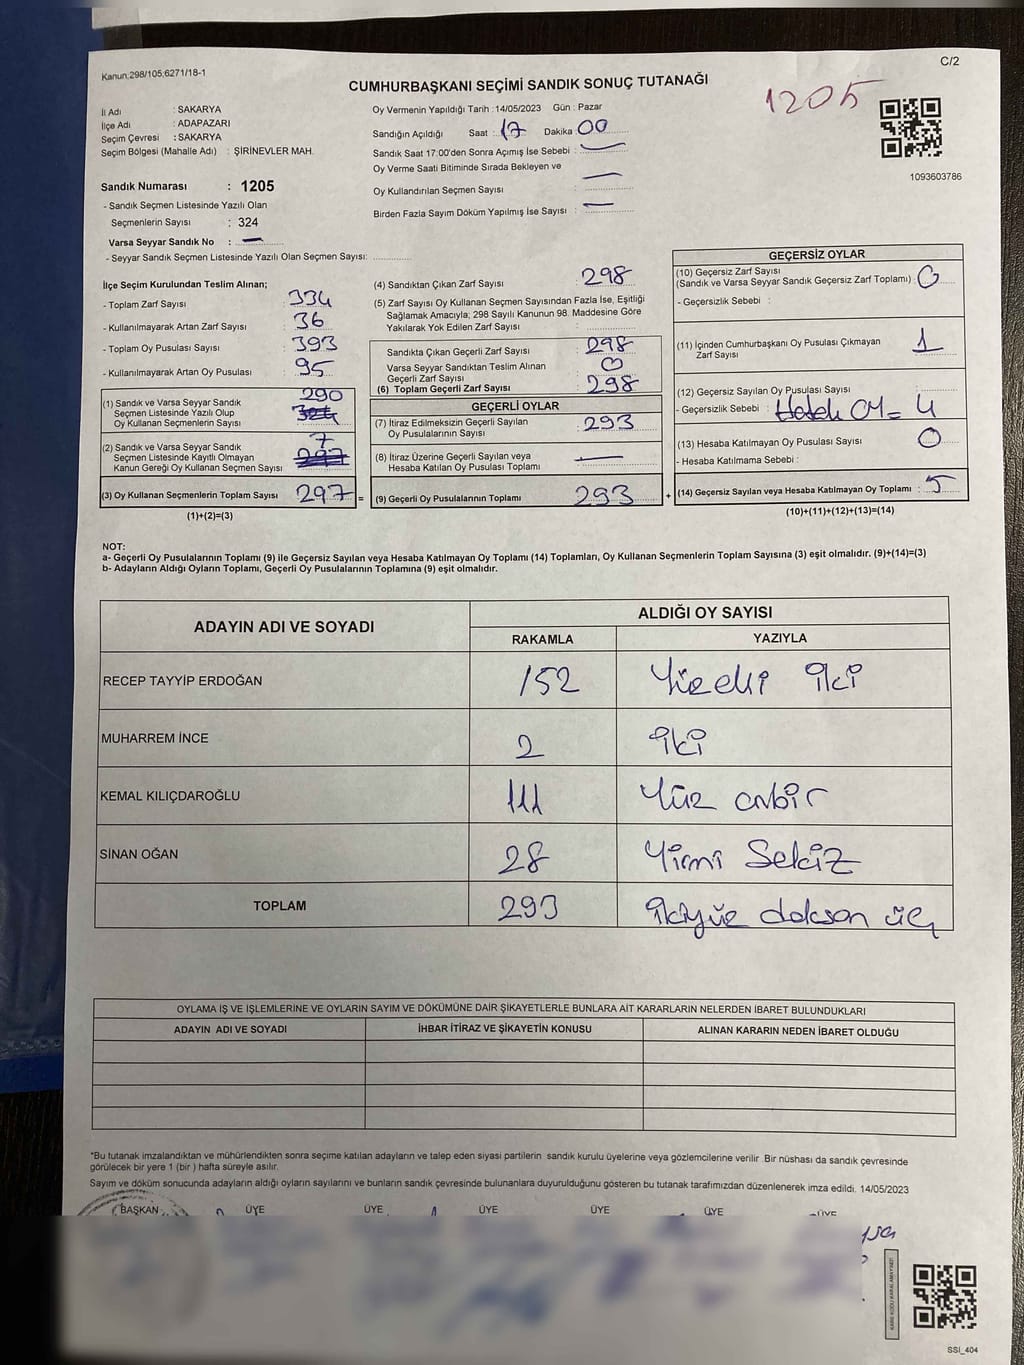 Kanun:298/105;6271/18-1
C/2
CUMHURBAŞKANI SEÇİMİ SANDIK SONUÇ TUTANAĞI
1205
İl Adı : SAKARYA
İlçe Adı : ADAPAZARI
Seçim Çevresi : SAKARYA
Seçim Bölgesi (Mahalle Adı) : ŞİRİNEVLER MAH.
Sandık Numarası : 1205
- Sandık Seçmen Listesinde Yazılı Olan
Seçmenlerin Sayısı : 324
Varsa Seyyar Sandık No : —
- Seyyar Sandık Seçmen Listesinde Yazılı Olan Seçmen Sayısı:
Oy Vermenin Yapıldığı Tarih :14/05/2023 Gün : Pazar
Sandığın Açıldığı Saat : 17 Dakika : 00
Sandık Saat 17:00'den Sonra Açımış İse Sebebi : —
Oy Verme Saati Bitiminde Sırada Bekleyen ve
Oy Kullandırılan Seçmen Sayısı : —
Birden Fazla Sayım Döküm Yapılmış İse Sayısı : —
1093603786
İlçe Seçim Kurulundan Teslim Alınan;
- Toplam Zarf Sayısı : 334
- Kullanılmayarak Artan Zarf Sayısı : 36
- Toplam Oy Pusulası Sayısı : 393
- Kullanılmayarak Artan Oy Pusulası : 95
290
(1) Sandık ve Varsa Seyyar Sandık
Seçmen Listesinde Yazılı Olup
Oy Kullanan Seçmenlerin Sayısı : 324
7
(2) Sandık ve Varsa Seyyar Sandık
Seçmen Listesinde Kayıtlı Olmayan
Kanun Gereği Oy Kullanan Seçmen Sayısı : 297
(3) Oy Kullanan Seçmenlerin Toplam Sayısı : 297 =
(1)+(2)=(3)
(4) Sandıktan Çıkan Zarf Sayısı : 298
(5) Zarf Sayısı Oy Kullanan Seçmen Sayısından Fazla İse, Eşitliği
Sağlamak Amacıyla; 298 Sayılı Kanunun 98. Maddesine Göre
Yakılarak Yok Edilen Zarf Sayısı :
Sandıkta Çıkan Geçerli Zarf Sayısı : 298
Varsa Seyyar Sandıktan Teslim Alınan
Geçerli Zarf Sayısı : 0
(6) Toplam Geçerli Zarf Sayısı : 298
GEÇERLİ OYLAR
(7) İtiraz Edilmeksizin Geçerli Sayılan
Oy Pusulalarının Sayısı : 293
(8) İtiraz Üzerine Geçerli Sayılan veya
Hesaba Katılan Oy Pusulası Toplamı : —
(9) Geçerli Oy Pusulalarının Toplamı : 293 +
GEÇERSİZ OYLAR
(10) Geçersiz Zarf Sayısı
(Sandık ve Varsa Seyyar Sandık Geçersiz Zarf Toplamı) : 0
- Geçersizlik Sebebi :
(11) İçinden Cumhurbaşkanı Oy Pusulası Çıkmayan
Zarf Sayısı : 1
(12) Geçersiz Sayılan Oy Pusulası Sayısı :
- Geçersizlik Sebebi : Hatalı Oy = 4
(13) Hesaba Katılmayan Oy Pusulası Sayısı : 0
- Hesaba Katılmama Sebebi :
(14) Geçersiz Sayılan veya Hesaba Katılmayan Oy Toplamı : 5
(10)+(11)+(12)+(13)=(14)
NOT:
a- Geçerli Oy Pusulalarının Toplamı (9) ile Geçersiz Sayılan veya Hesaba Katılmayan Oy Toplamı (14) Toplamları, Oy Kullanan Seçmenlerin Toplam Sayısına (3) eşit olmalıdır. (9)+(14)=(3)
b- Adayların Aldığı Oyların Toplamı, Geçerli Oy Pusulalarının Toplamına (9) eşit olmalıdır.
ADAYIN ADI VE SOYADI ALDIĞI OY SAYISI
RAKAMLA YAZIYLA
RECEP TAYYİP ERDOĞAN 152 Yüzelli iki
MUHARREM İNCE 2 iki
KEMAL KILIÇDAROĞLU 111 Yüz onbir
SİNAN OĞAN 28 Yirmi Sekiz
TOPLAM 293 ikiyüz doksan üç
OYLAMA İŞ VE İŞLEMLERİNE VE OYLARIN SAYIM VE DÖKÜMÜNE DAİR ŞİKAYETLERLE BUNLARA AİT KARARLARIN NELERDEN İBARET BULUNDUKLARI
ADAYIN ADI VE SOYADI İHBAR İTİRAZ VE ŞİKAYETİN KONUSU ALINAN KARARIN NEDEN İBARET OLDUĞU
*Bu tutanak imzalandıktan ve mühürlendikten sonra seçime katılan adayların ve talep eden siyasi partilerin sandık kurulu üyelerine veya gözlemcilerine verilir .Bir nüshası da sandık çevresinde
görülecek bir yere 1 (bir ) hafta süreyle asılır.
Sayım ve döküm sonucunda adayların aldığı oyların sayılarını ve bunların sandık çevresinde bulunanlara duyurulduğunu gösteren bu tutanak tarafımızdan düzenlenerek imza edildi. 14/05/2023
BAŞKAN ÜYE ÜYE ÜYE ÜYE ÜYE ÜYE
KARE KODU KARALAMAYINIZ!
SSI_404